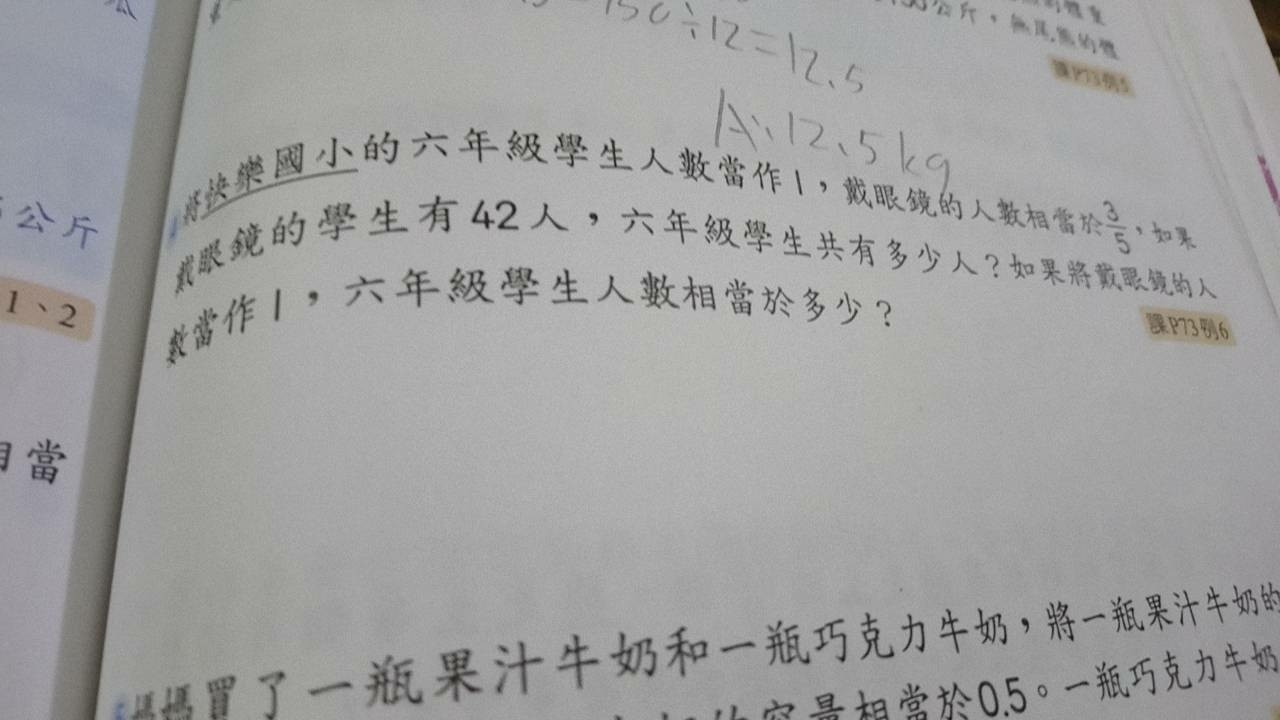 公斤，無尾熊的體
150÷12=12.5
課P73例5
A:12.5kg
將快樂國小的六年級學生人數當作1，戴眼鏡的人數相當於3/5，如果
戴眼鏡的學生有42人，六年級學生共有多少人？如果將戴眼鏡的人
數當作1，六年級學生人數相當於多少？
課P73例6
公斤
1、2
當
媽媽買了一瓶果汁牛奶和一瓶巧克力牛奶，將一瓶果汁牛奶的
容量相當於0.5。一瓶巧克力牛奶